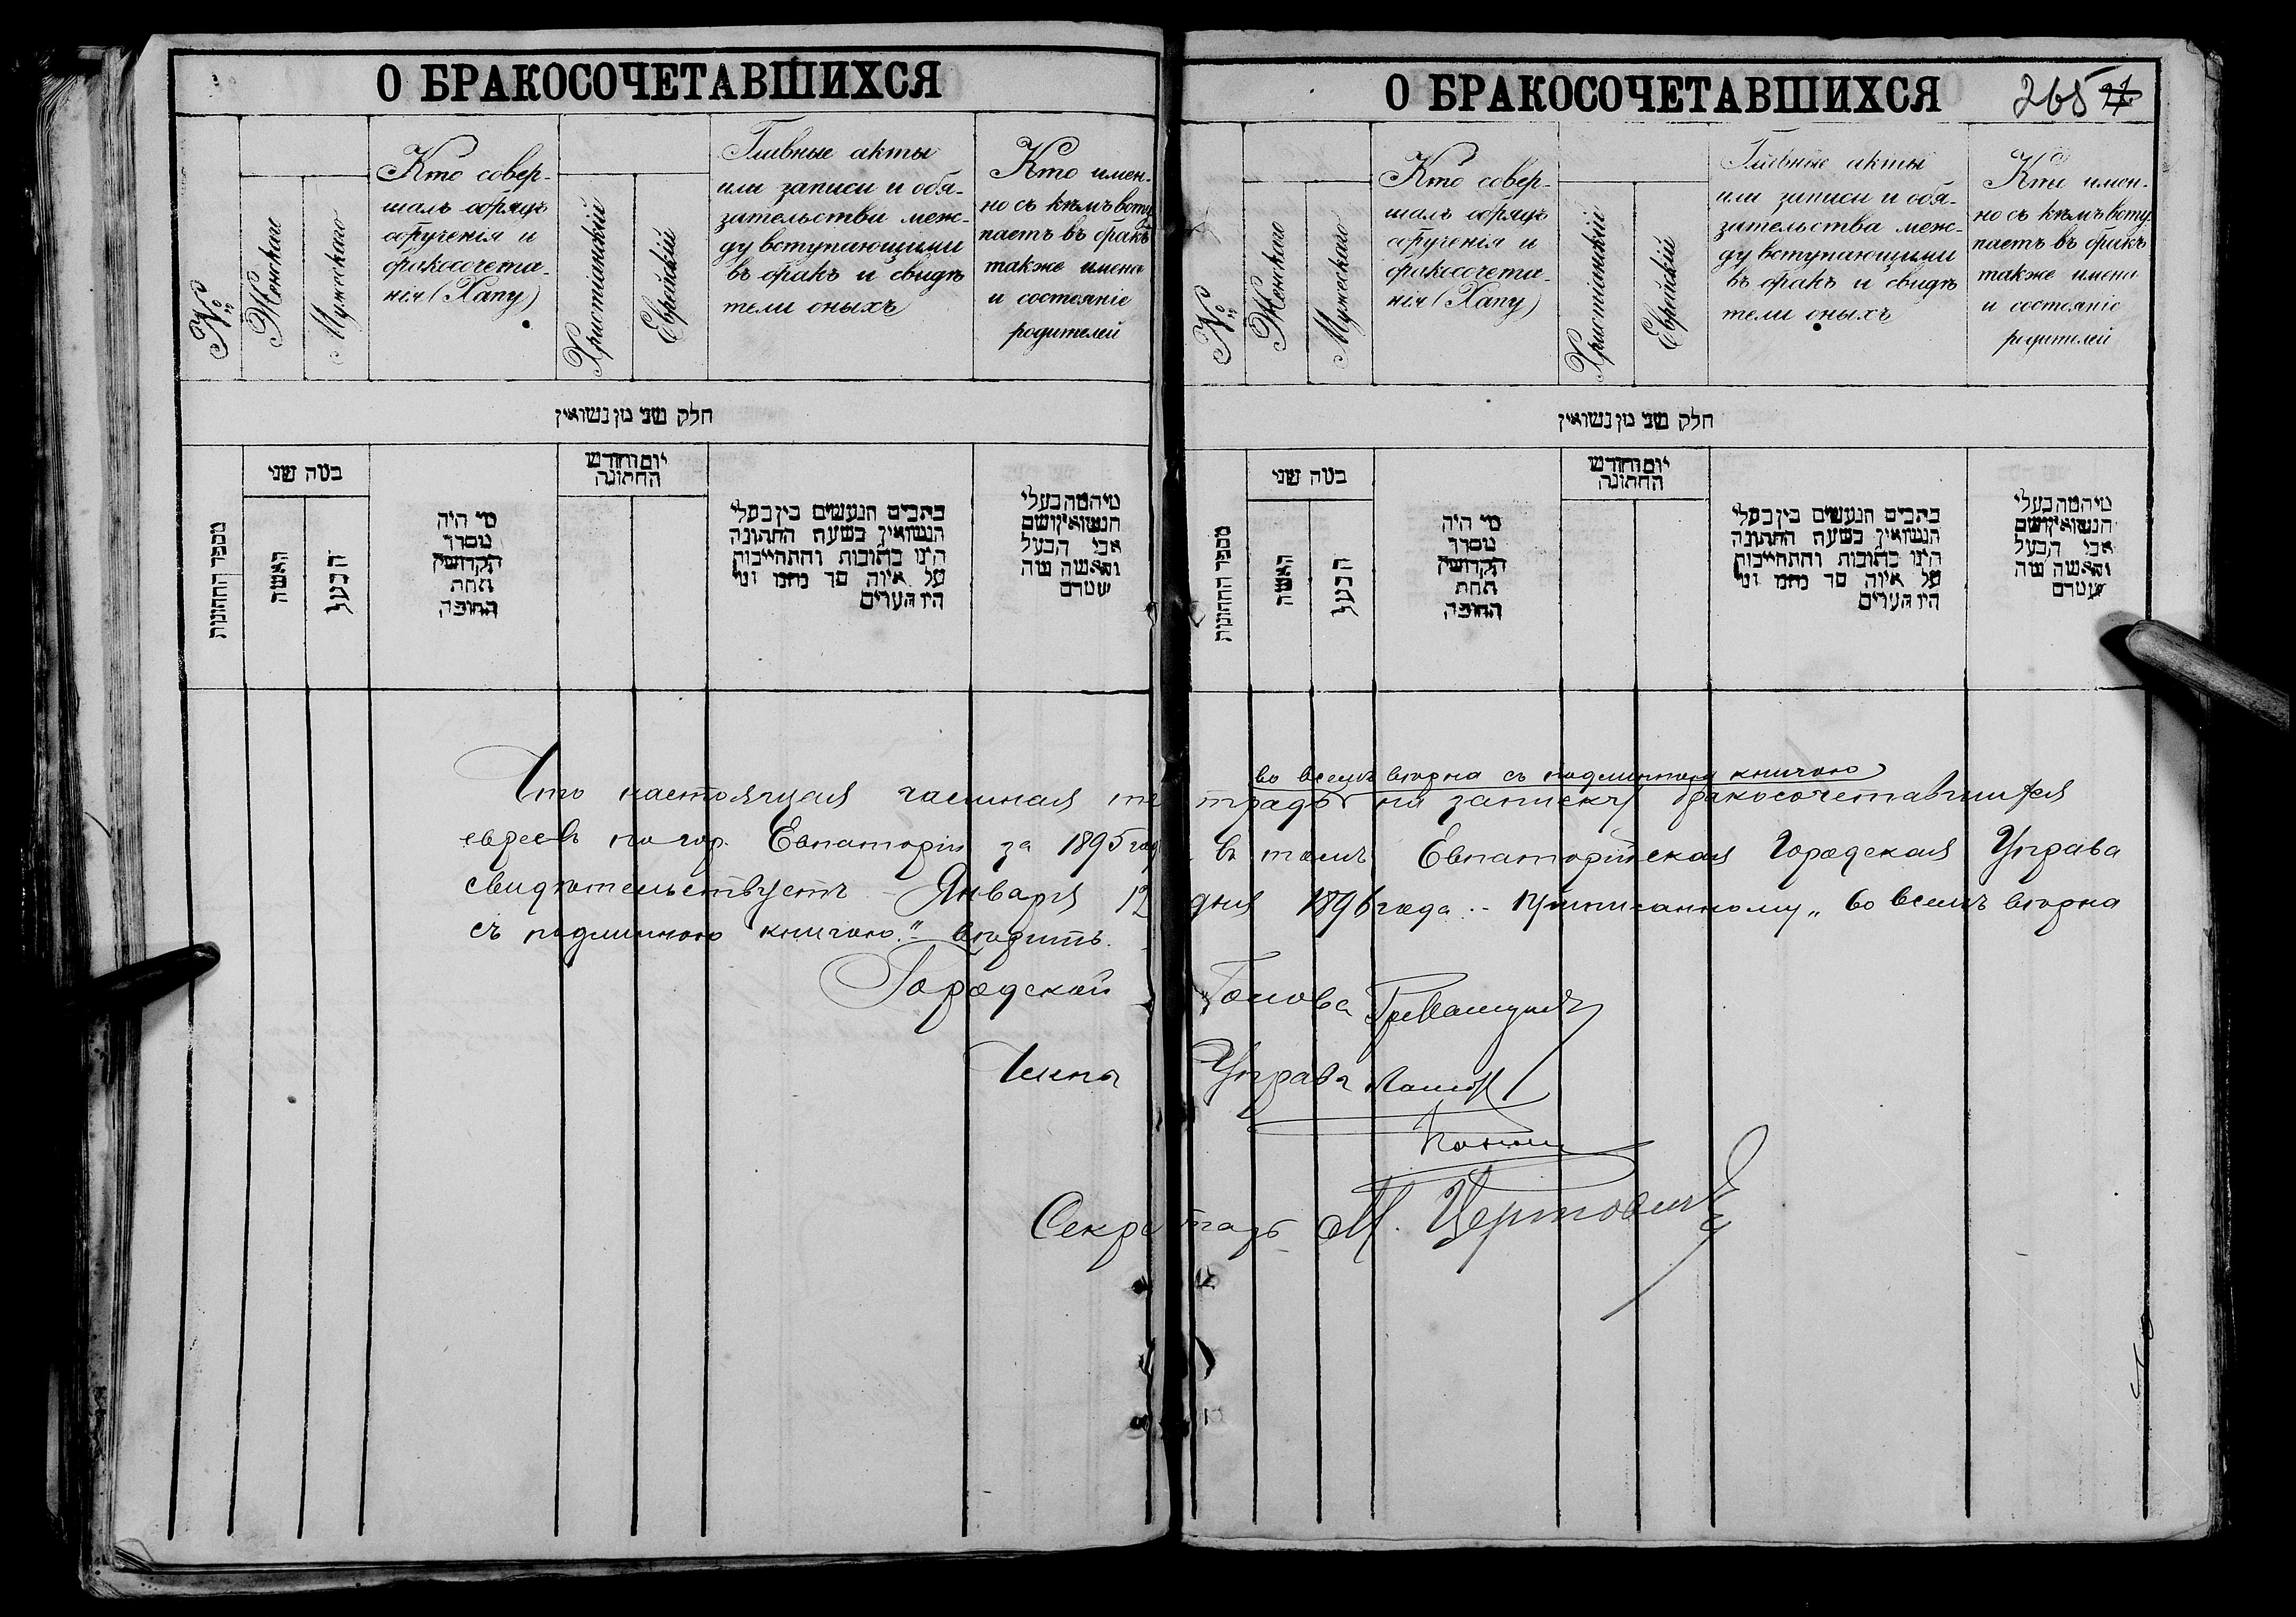 О БРАКОСОЧЕТАВШИХСЯ
№
Женскаго
Мужескаго
Кто совер-
шалъ обрядъ
обрученія и
бракосочета-
нія (Хапу)
Христіанскій
Еврейскій
Главные акты
или записи и обя-
зательства меж-
ду вступающими
въ бракъ и свидѣ
тели оныхъ
Кто имен-
но съ кѣмъ всту
паетъ въ бракъ
также имена
и состояніе
родителей
חלק שני מן נשואין
מספר החתונות
כמה שני
האשה
הבעל
מי היה
מסדר
הקדושין
תחת
החופה
יום וחודש
החתונה
כתבים הנעשים בין בעלי
הנשואין בשעת החתונה
היינו כתובות והתחייבות
על איזה סך
היו העדים
מי המה בעלי
הנשואין ושם
אבי הבעל
והאשה
О БРАКОСОЧЕТАВШИХСЯ
265
№
Женскаго
Мужескаго
Кто совер-
шалъ обрядъ
обрученія и
бракосочета-
нія (Хапу)
Христіанскій
Еврейскій
Главные акты
или записи и обя-
зательства меж-
ду вступающими
въ бракъ и свидѣ
тели оныхъ
Кто имен-
но съ кѣмъ всту
паетъ въ бракъ
также имена
и состояніе
родителей
חלק שני מן נשואין
מספר החתונות
כמה שני
האשה
הבעל
מי היה
מסדר
הקדושין
תחת
החופה
יום וחודש
החתונה
כתבים הנעשים בין בעלי
הנשואין בשעת החתונה
היינו כתובות והתחייבות
על איזה סך
היו העדים
מי המה בעלי
הנשואין ושם
אבי הבעל
והאשה
во всемъ вѣрна съ подлинною книгою
Что настоящая частная тетрадь на записку бракосочетавшихся
евреевъ по гор. Евпаторіи за 1895 годъ въ томъ Евпаторійская Городская Управа
свидѣтельствуетъ Января 12 дня 1896 года. - Приписанному „во всемъ вѣрна
съ подлинною книгою." вѣрить.
Городской Голова
Члены Управы
Секретарь М.